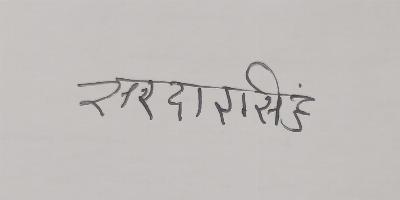 सरदारासिंह